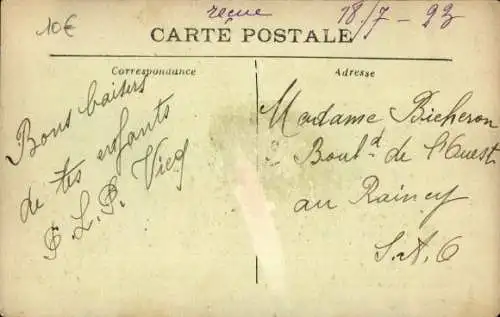 10€
reçue 18/7 - 23
CARTE POSTALE
Correspondance
Bons baisers
de tes enfants
Adresse
Madame Bicheron
Boul.d de l'Ouest
au Raincy